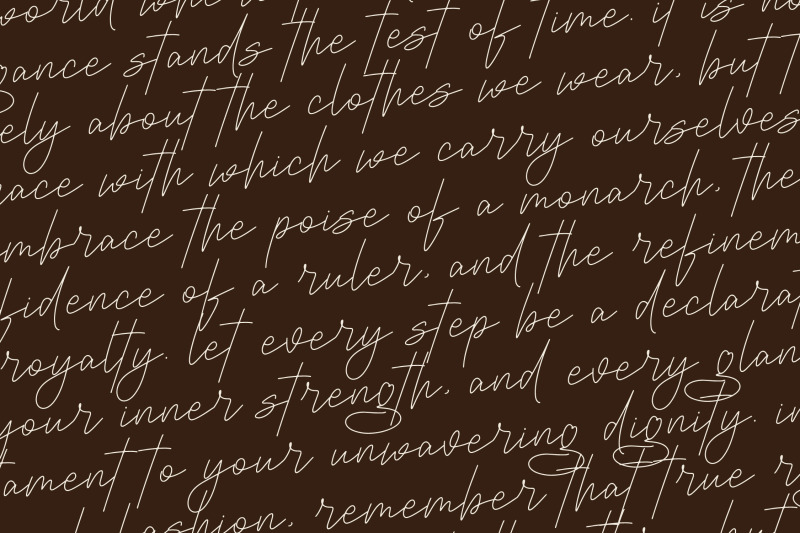 world who
rance stands the test of time. it is no
ely about the clothes we wear, but t
ace with which we carry ourselves
mbrace the poise of a monarch, the
fidence of a ruler, and the refinem
royalty. let every step be a declarat
your inner strength, and every glan
tament to your unwavering dignity. in
fashion, remember that true r